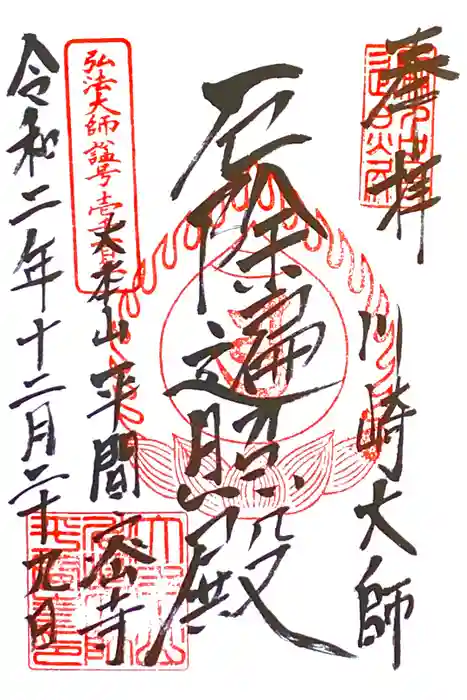 奉拝
川崎大師
厄除遍照殿
大本山平間密寺
弘法大師諡号壱
令和二年十二月二十九日